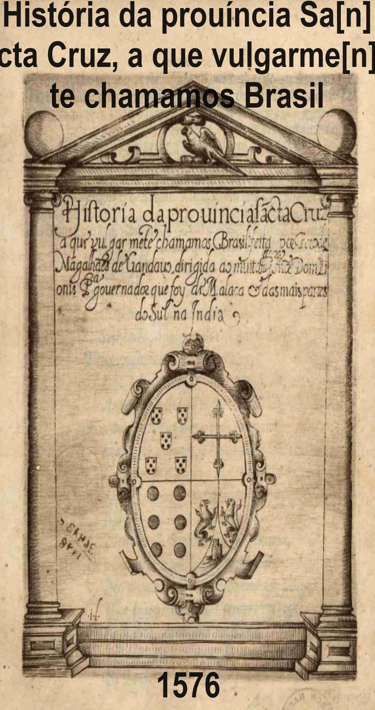 História da prouíncia Sa[n]
cta Cruz, a que vulgarme[n]
te chamamos Brasil
Historia da prouincia sãcta Cruz
a que vulgar mẽte chamamos Brasil feita por
Magalhães de Gandauo, dirigida ao Dom
onis Pra gouernador que foy de Malaca & das mais partes
do Sul na India
1576